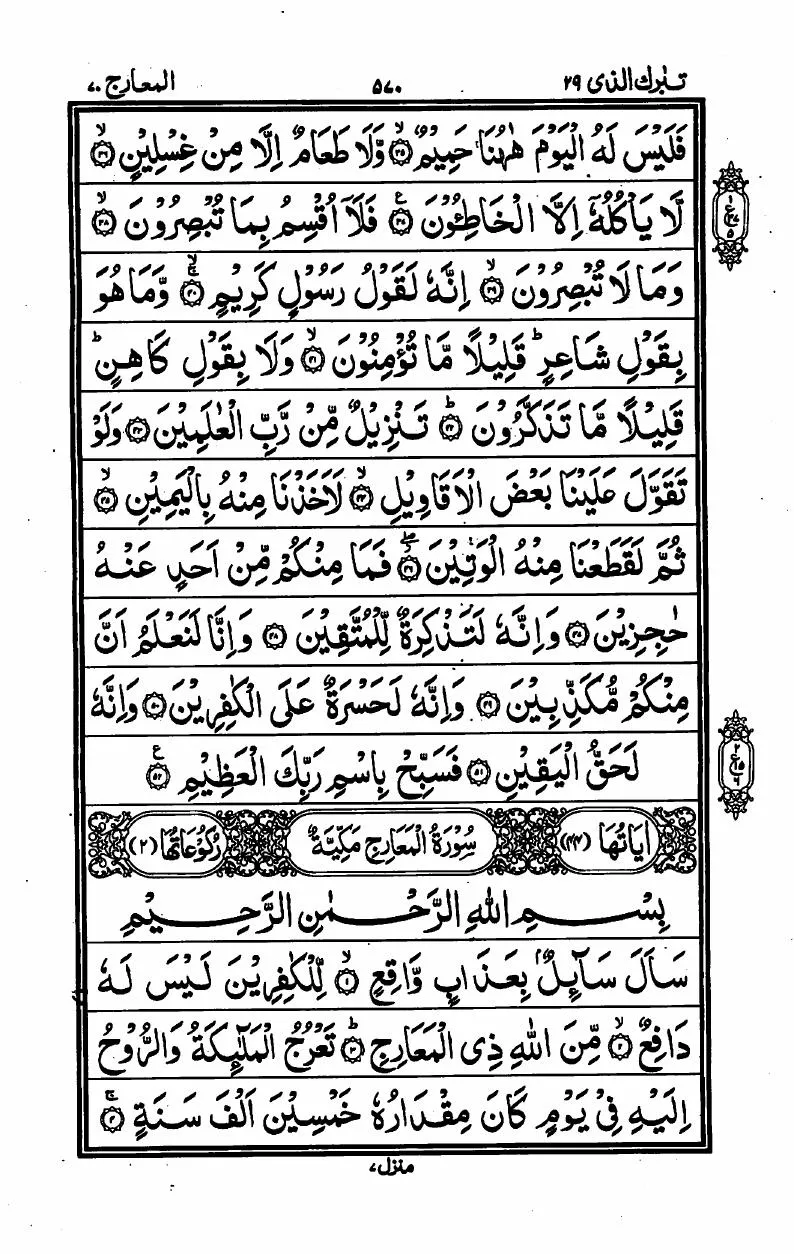 تبٰرك الذی ۲۹ ۵۷۰ المعارج ۷۰
فَلَیْسَ لَهُ الْیَوْمَ هٰهُنَا حَمِیْمٌ ۙ﴿۳۵﴾ وَّلَا طَعَامٌ اِلَّا مِنْ غِسْلِیْنٍ ۙ﴿۳۶﴾
لَّا یَاْكُلُهٗۤ اِلَّا الْخَاطِـُٔوْنَ ﴿۳۷﴾ ع فَلَاۤ اُقْسِمُ بِمَا تُبْصِرُوْنَ ۙ﴿۳۸﴾
وَمَا لَا تُبْصِرُوْنَ ۙ﴿۳۹﴾ اِنَّهٗ لَقَوْلُ رَسُوْلٍ كَرِیْمٍ ۚۙ﴿۴۰﴾ وَّمَا هُوَ
بِقَوْلِ شَاعِرٍ ؕ قَلِیْلًا مَّا تُؤْمِنُوْنَ ۙ﴿۴۱﴾ وَلَا بِقَوْلِ كَاهِنٍ ؕ
قَلِیْلًا مَّا تَذَكَّرُوْنَ ؕ﴿۴۲﴾ تَنْزِیْلٌ مِّنْ رَّبِّ الْعٰلَمِیْنَ ﴿۴۳﴾ وَلَوْ
تَقَوَّلَ عَلَیْنَا بَعْضَ الْاَقَاوِیْلِ ۙ﴿۴۴﴾ لَاَخَذْنَا مِنْهُ بِالْیَمِیْنِ ۙ﴿۴۵﴾
ثُمَّ لَقَطَعْنَا مِنْهُ الْوَتِیْنَ ۖ﴿۴۶﴾ فَمَا مِنْكُمْ مِّنْ اَحَدٍ عَنْهُ
حٰجِزِیْنَ ﴿۴۷﴾ وَاِنَّهٗ لَتَذْكِرَةٌ لِّلْمُتَّقِیْنَ ﴿۴۸﴾ وَاِنَّا لَنَعْلَمُ اَنَّ
مِنْكُمْ مُّكَذِّبِیْنَ ﴿۴۹﴾ وَاِنَّهٗ لَحَسْرَةٌ عَلَی الْكٰفِرِیْنَ ﴿۵۰﴾ وَاِنَّهٗ
لَحَقُّ الْیَقِیْنِ ﴿۵۱﴾ فَسَبِّحْ بِاسْمِ رَبِّكَ الْعَظِیْمِ ﴿۵۲﴾ ع
اٰیَاتُهَا (۴۴) سُوْرَةُ الْمَعَارِجِ مَكِّیَّةٌ رُكُوْعَاتُهَا (۲)
بِسْمِ اللهِ الرَّحْمٰنِ الرَّحِیْمِ
سَاَلَ سَآىِٕلٌۢ بِعَذَابٍ وَّاقِعٍ ۙ﴿۱﴾ لِّلْكٰفِرِیْنَ لَیْسَ لَهٗ
دَافِعٌ ۙ﴿۲﴾ مِّنَ اللهِ ذِی الْمَعَارِجِ ؕ﴿۳﴾ تَعْرُجُ الْمَلٰٓىِٕكَةُ وَالرُّوْحُ
اِلَیْهِ فِیْ یَوْمٍ كَانَ مِقْدَارُهٗ خَمْسِیْنَ اَلْفَ سَنَةٍ ۚ﴿۴﴾
منزل ۷